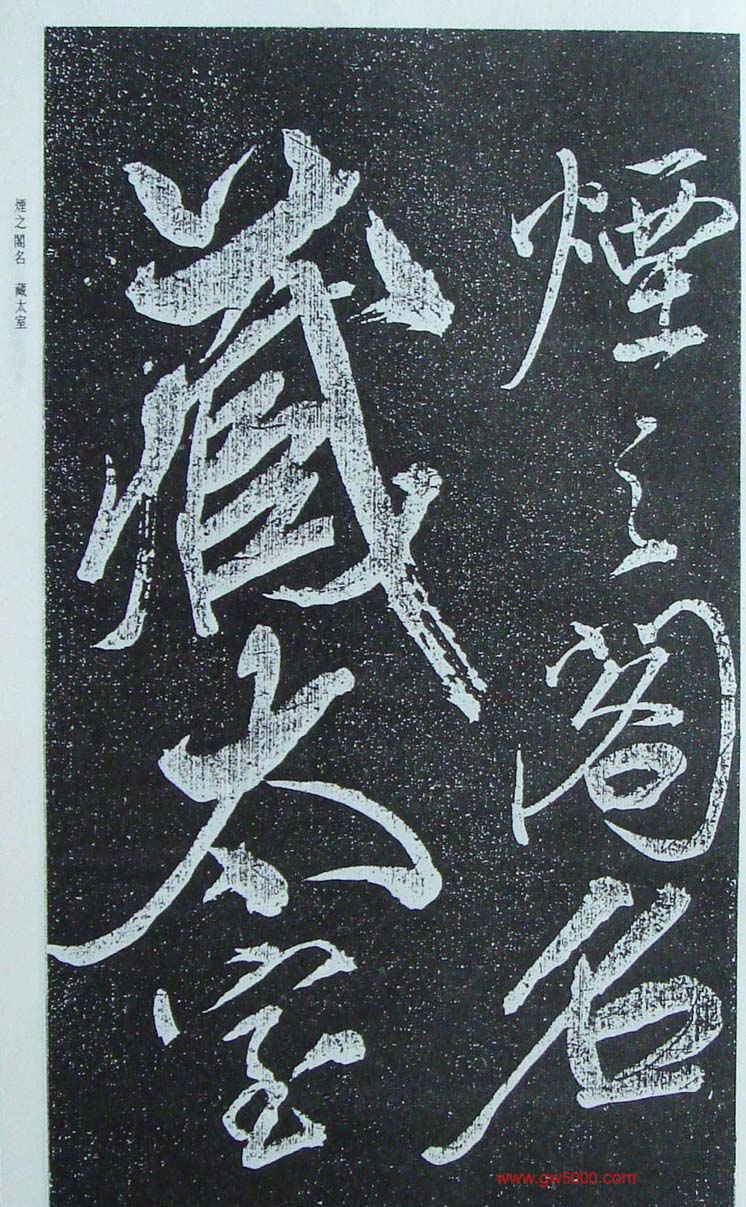 煙之閣名
藏太室
煙之閣名 藏太室
www.gw5000.com